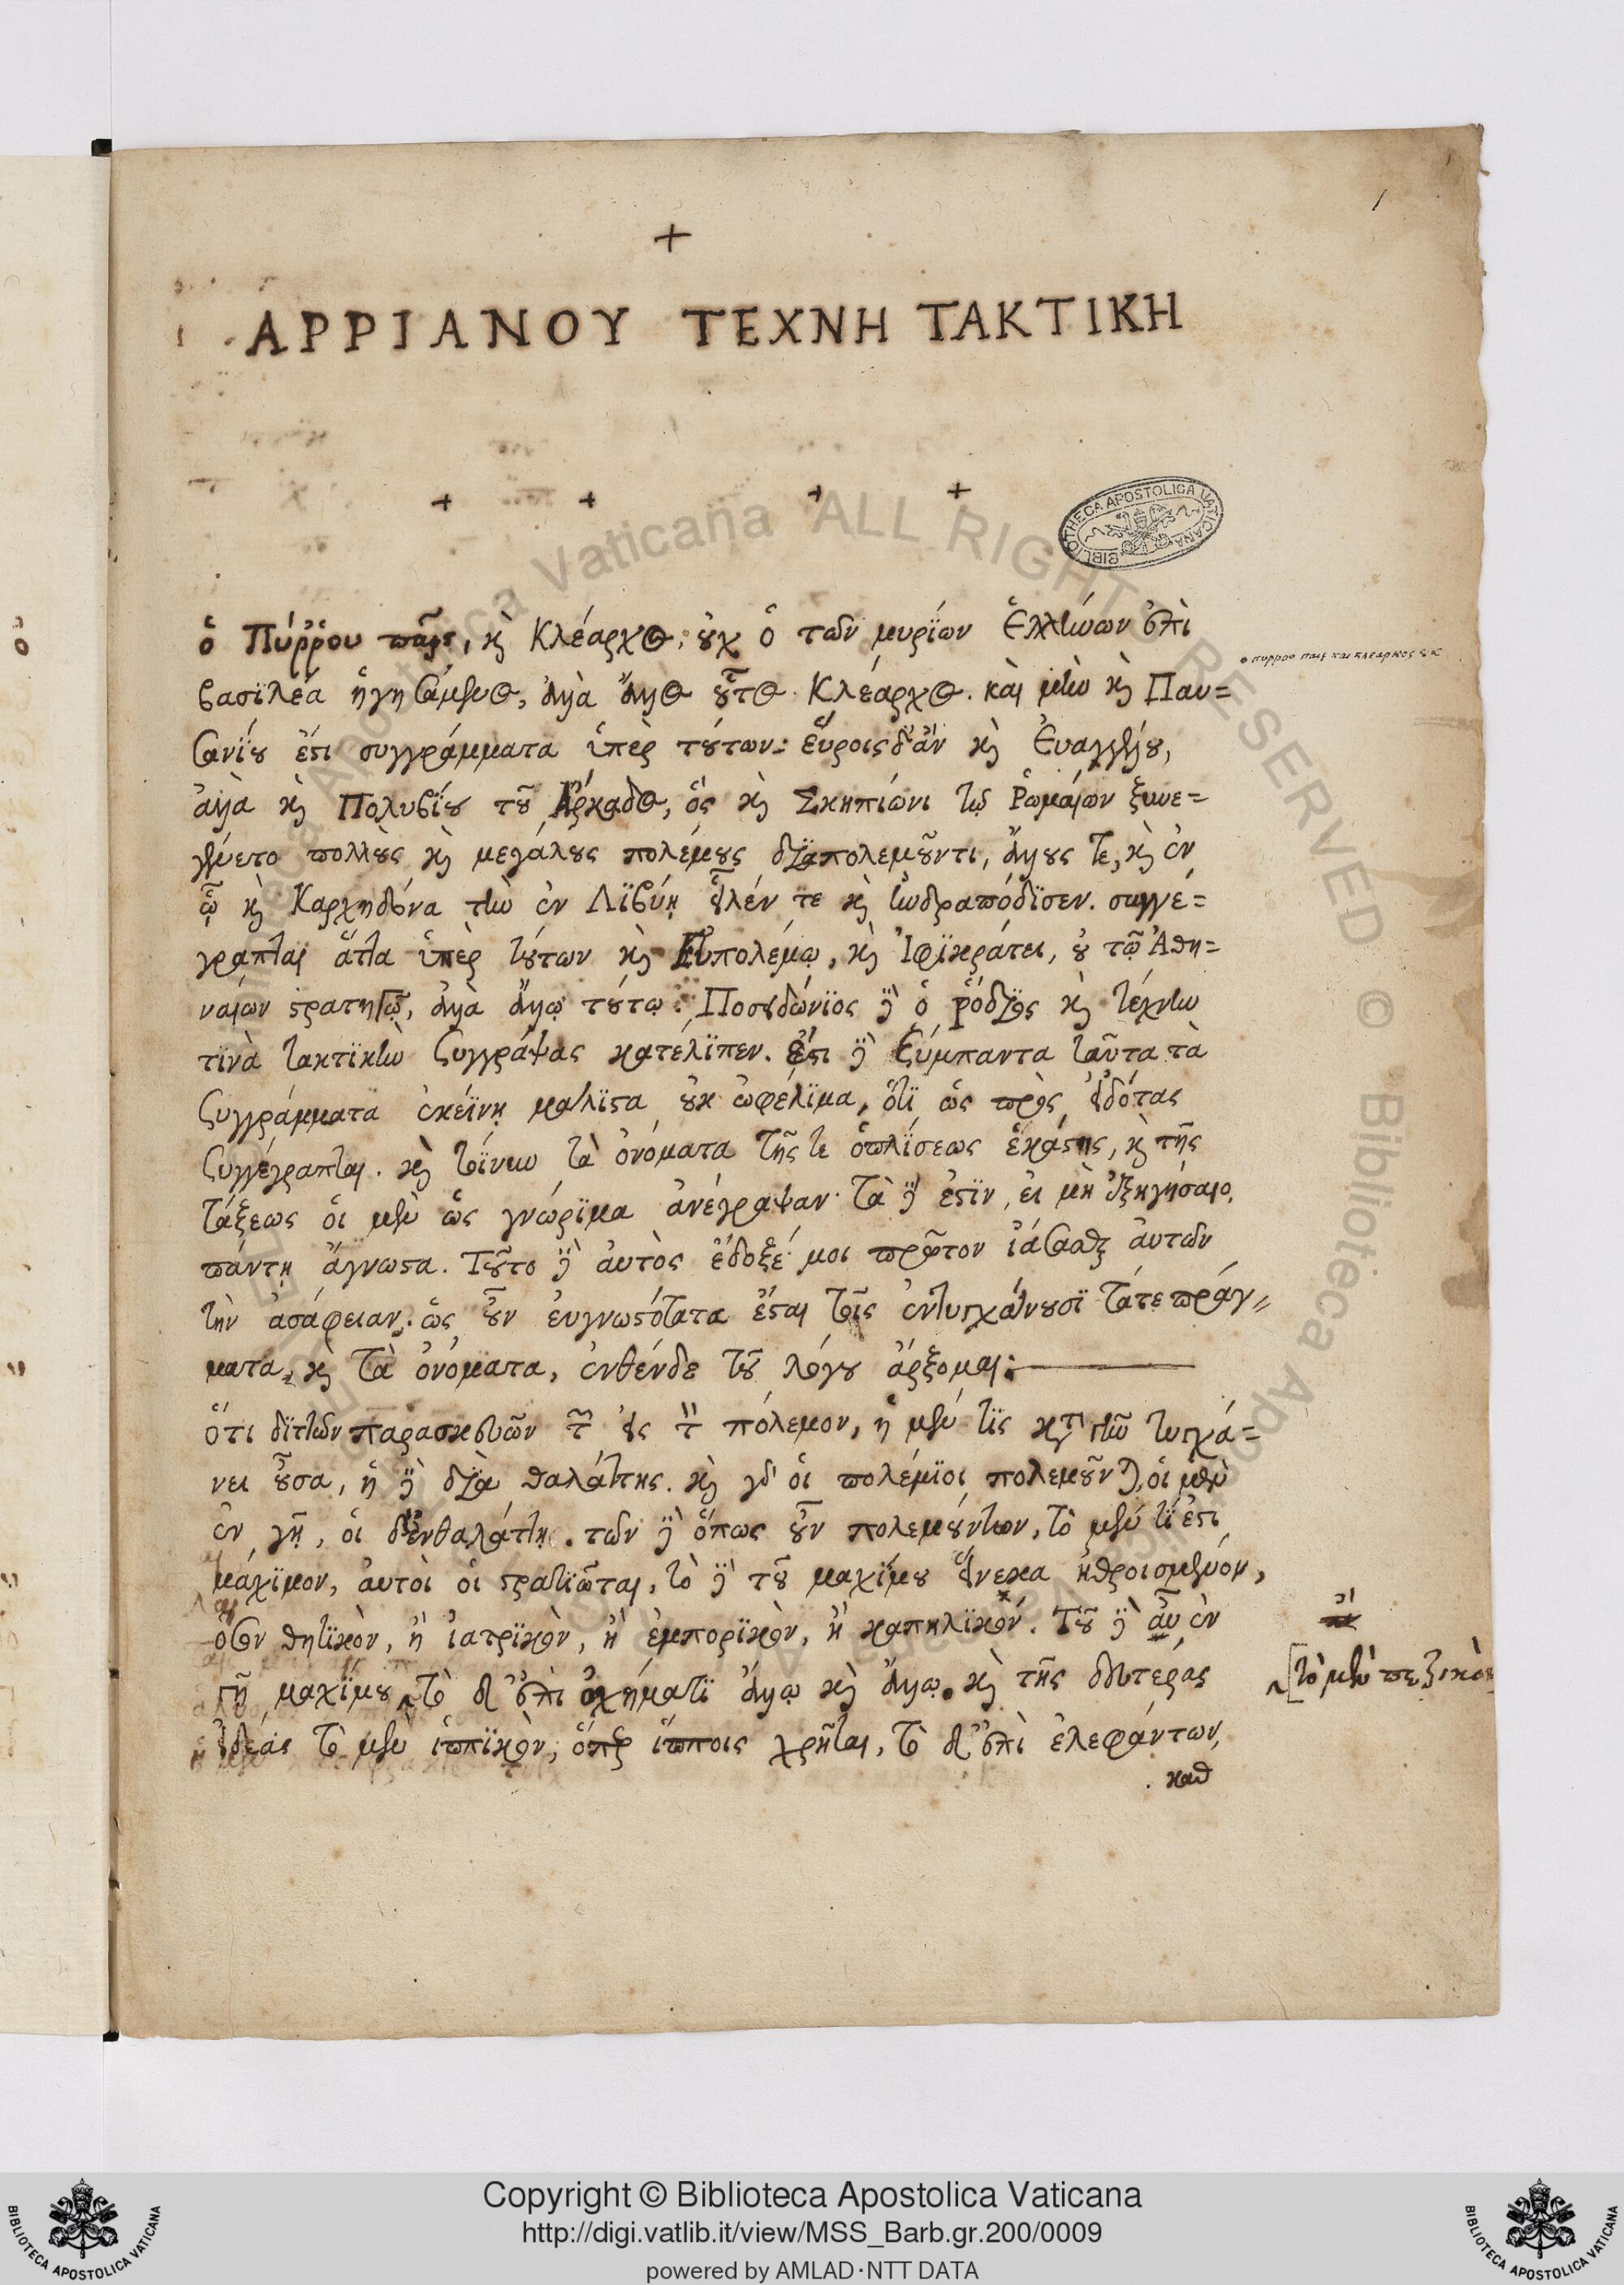 ΑΡΡΙΑΝΟΥ ΤΕΧΝΗ ΤΑΚΤΙΚΗ
ὁ Πύῤῥου παῖς, κὶ Κλέαρχος, οὐχ ὁ τῶν μυρίων Ἑλλήνων ἐπὶ
βασιλέα ἡγησάμενος, ἀλλὰ ἄλλος οὗτος Κλέαρχος. καὶ μὴν κὶ Παυ=
σανίου ἔστι συγγράμματα ὑπὲρ τούτων. εὕροις δ' ἂν κὶ Εὐαγγέλου,
ἀλλὰ κὶ Πολυβίου τοῦ Ἀρκάδος, ὃς κὶ Σκηπίωνι τῷ Ῥωμαίων ξυνε=
γένετο πολλοὺς κὶ μεγάλους πολέμους διαπολεμοῦντι, ἄλλους τε, κὶ ἐν
ᾧ κὶ Καρχηδόνα τὴν ἐν Λιβύῃ εἷλέν τε κὶ ἠνδραπόδισεν. συγγέ=
γραπται ἅττα ὑπὲρ τούτων κὶ Εὐπολέμῳ, κὶ Ἰφικράτει, οὐ τῷ Ἀθη=
ναίων στρατηγῷ, ἀλλὰ ἄλλῳ τούτῳ. Ποσειδώνιος δὲ ὁ Ῥόδιος κὶ τέχνην
τινὰ τακτικὴν ξυγγράψας κατέλιπεν. ἔστι δὲ ξύμπαντα ταῦτα τὰ
ξυγγράμματα ἐκείνῃ μάλιστα οὐκ ὠφέλιμα, ὅτι ὡς πρὸς εἰδότας
ξυγγέγραπται. κὶ τοίνυν τὰ ὀνόματα τῆς τε ὁπλίσεως ἑκάστης, κὶ τῆς
τάξεως οἱ μὲν ὡς γνώριμα ἀνέγραψαν. τὰ δὲ ἐστὶν, εἰ μὴ ἐξηγήσαιο,
πάντῃ ἄγνωστα. Τοῦτο δὲ αὐτὸς ἔδοξέ μοι πρῶτον ἰάσασθαι αὐτῶν
τὴν ἀσάφειαν. ὡς οὖν εὐγνωστότατα ἔσται τοῖς ἐντυγχάνουσι τάτε πράγ=
ματα, κὶ τὰ ὀνόματα, ἐνθένδε τοῦ λόγου ἄρξομαι.
ὅτι διττῶν παρασκευῶν τῶν εἰς τὸν πόλεμον, ἡ μὲν τις κατὰ γῆν τυγχά=
νει οὖσα, ἡ δὲ διὰ θαλάττης. κὶ γὰρ οἱ πολέμιοι πολεμοῦνται, οἱ μὲν
ἐν γῇ, οἱ δ' ἐν θαλάττῃ. τῶν δὲ ὅπως οὖν πολεμούντων, τὸ μέν τι ἐστὶ
μάχιμον, αὐτοὶ οἱ στρατιῶται, τὸ δὲ τοῦ μαχίμου εἵνεκα ἠθροισμένον,
θητικὸν, ἢ ἰατρικὸν, ἢ ἐμπορικὸν, ἢ καπηλικόν. Τοῦ δὲ αὖ ἐν
γῇ μαχίμου, τὸ δ' ἐπὶ ὀχήματι ἄλλῳ κὶ ἄλλῳ. κὶ τῆς δευτέρας
τὸ μὲν πεζικὸν
ἰδέας τὸ μὲν ἱππικὸν, ὅπερ ἵπποις χρῆται, τὸ δ' ἐπὶ ἐλεφάντων,
καθ
Copyright © Biblioteca Apostolica Vaticana
http://digi.vatlib.it/view/MSS_Barb.gr.200/0009
powered by AMLAD·NTT DATA
BIBLIOTECA APOSTOLICA VATICANA
BIBLIOTECA APOSTOLICA VATICANA